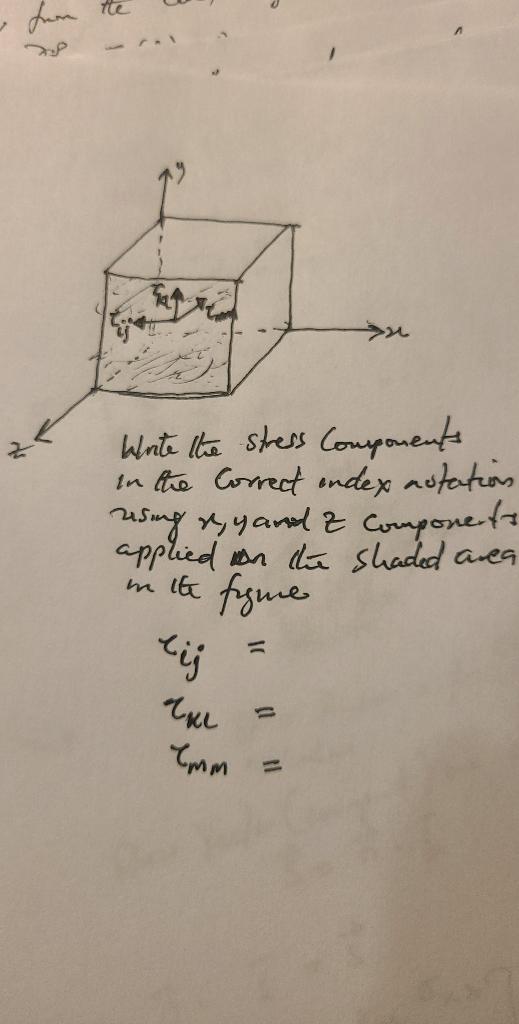 from the
y
τkl
τij
τmm
x
z
Write the stress Components
in the Correct index notation
using x, y and z components
applied on the shaded area
in the figure
τij =
τKL =
τmm =